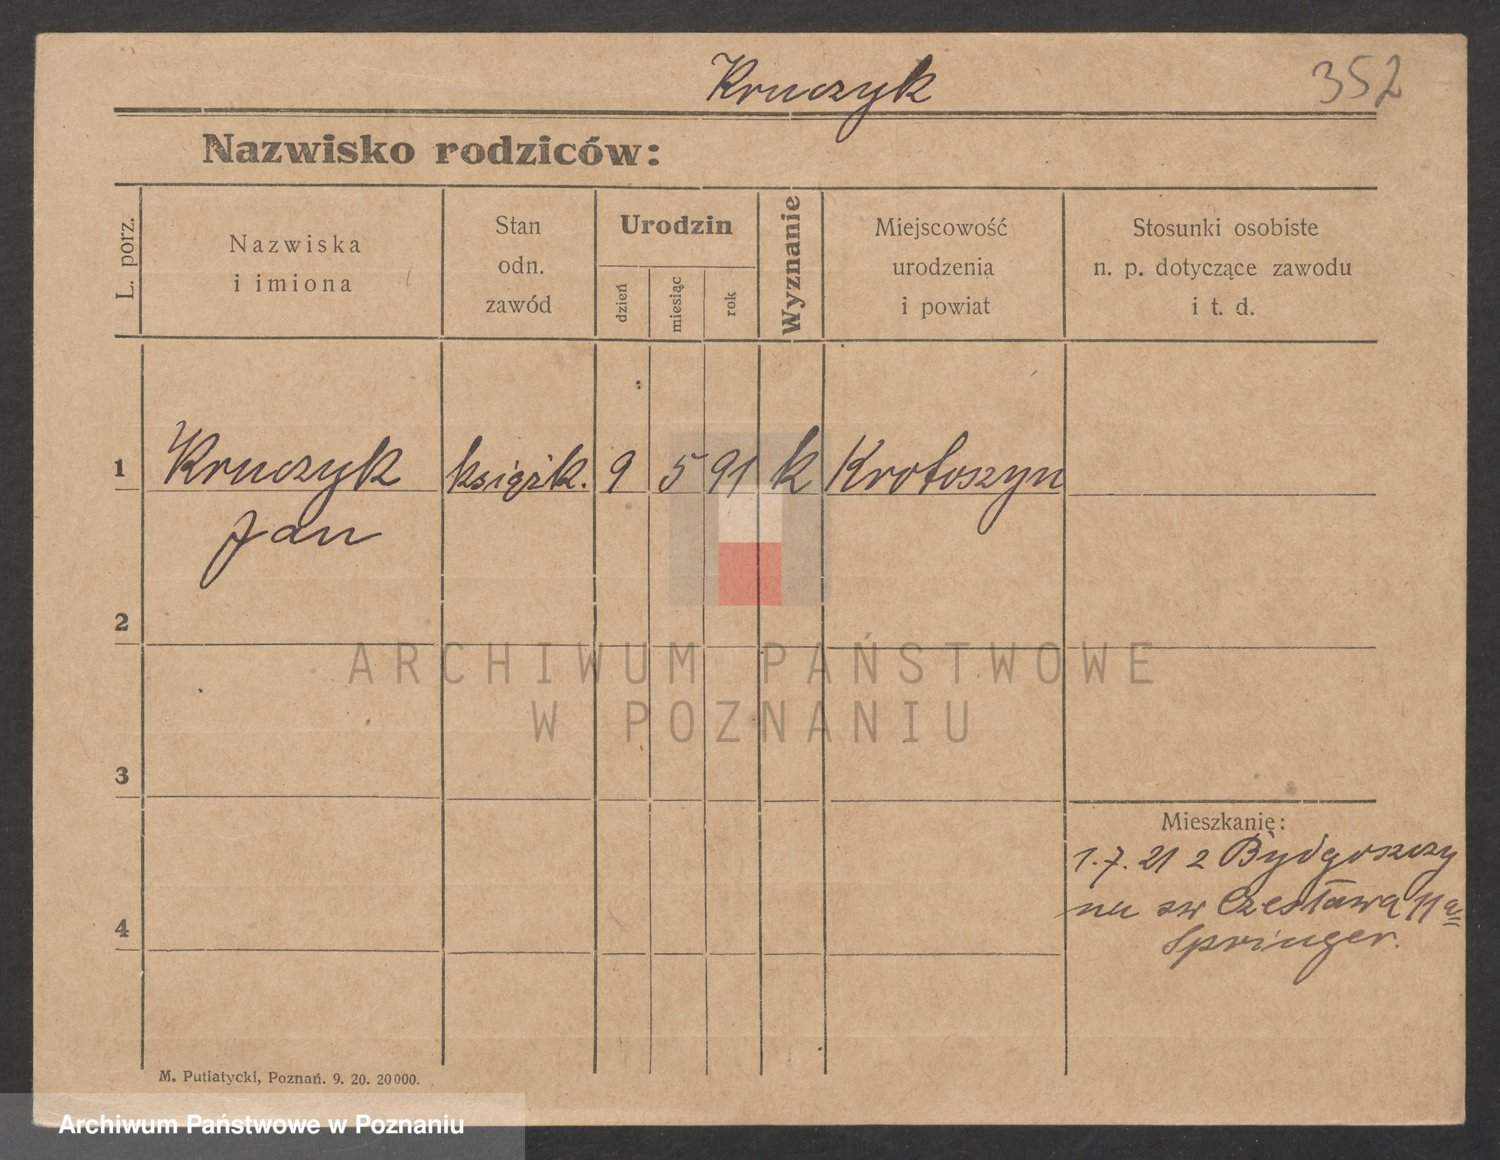 Kruczyk 352
Nazwisko rodziców:
L. porz.
Nazwiska
i imiona
Stan
odn.
zawód
Urodzin
dzień
miesiąc
rok
Wyznanie
Miejscowość
urodzenia
i powiat
Stosunki osobiste
n. p. dotyczące zawodu
i t. d.
1 Kruczyk książk. 9 5 91 k Krotoszyn
Jan
2
ARCHIWUM PAŃSTWOWE
W POZNANIU
3
Mieszkanie:
1.7.21 z Bydgoszczy
na św Czesława 11a
Springer.
4
M. Putiatycki, Poznań. 9. 20. 20000.
Archiwum Państwowe w Poznaniu